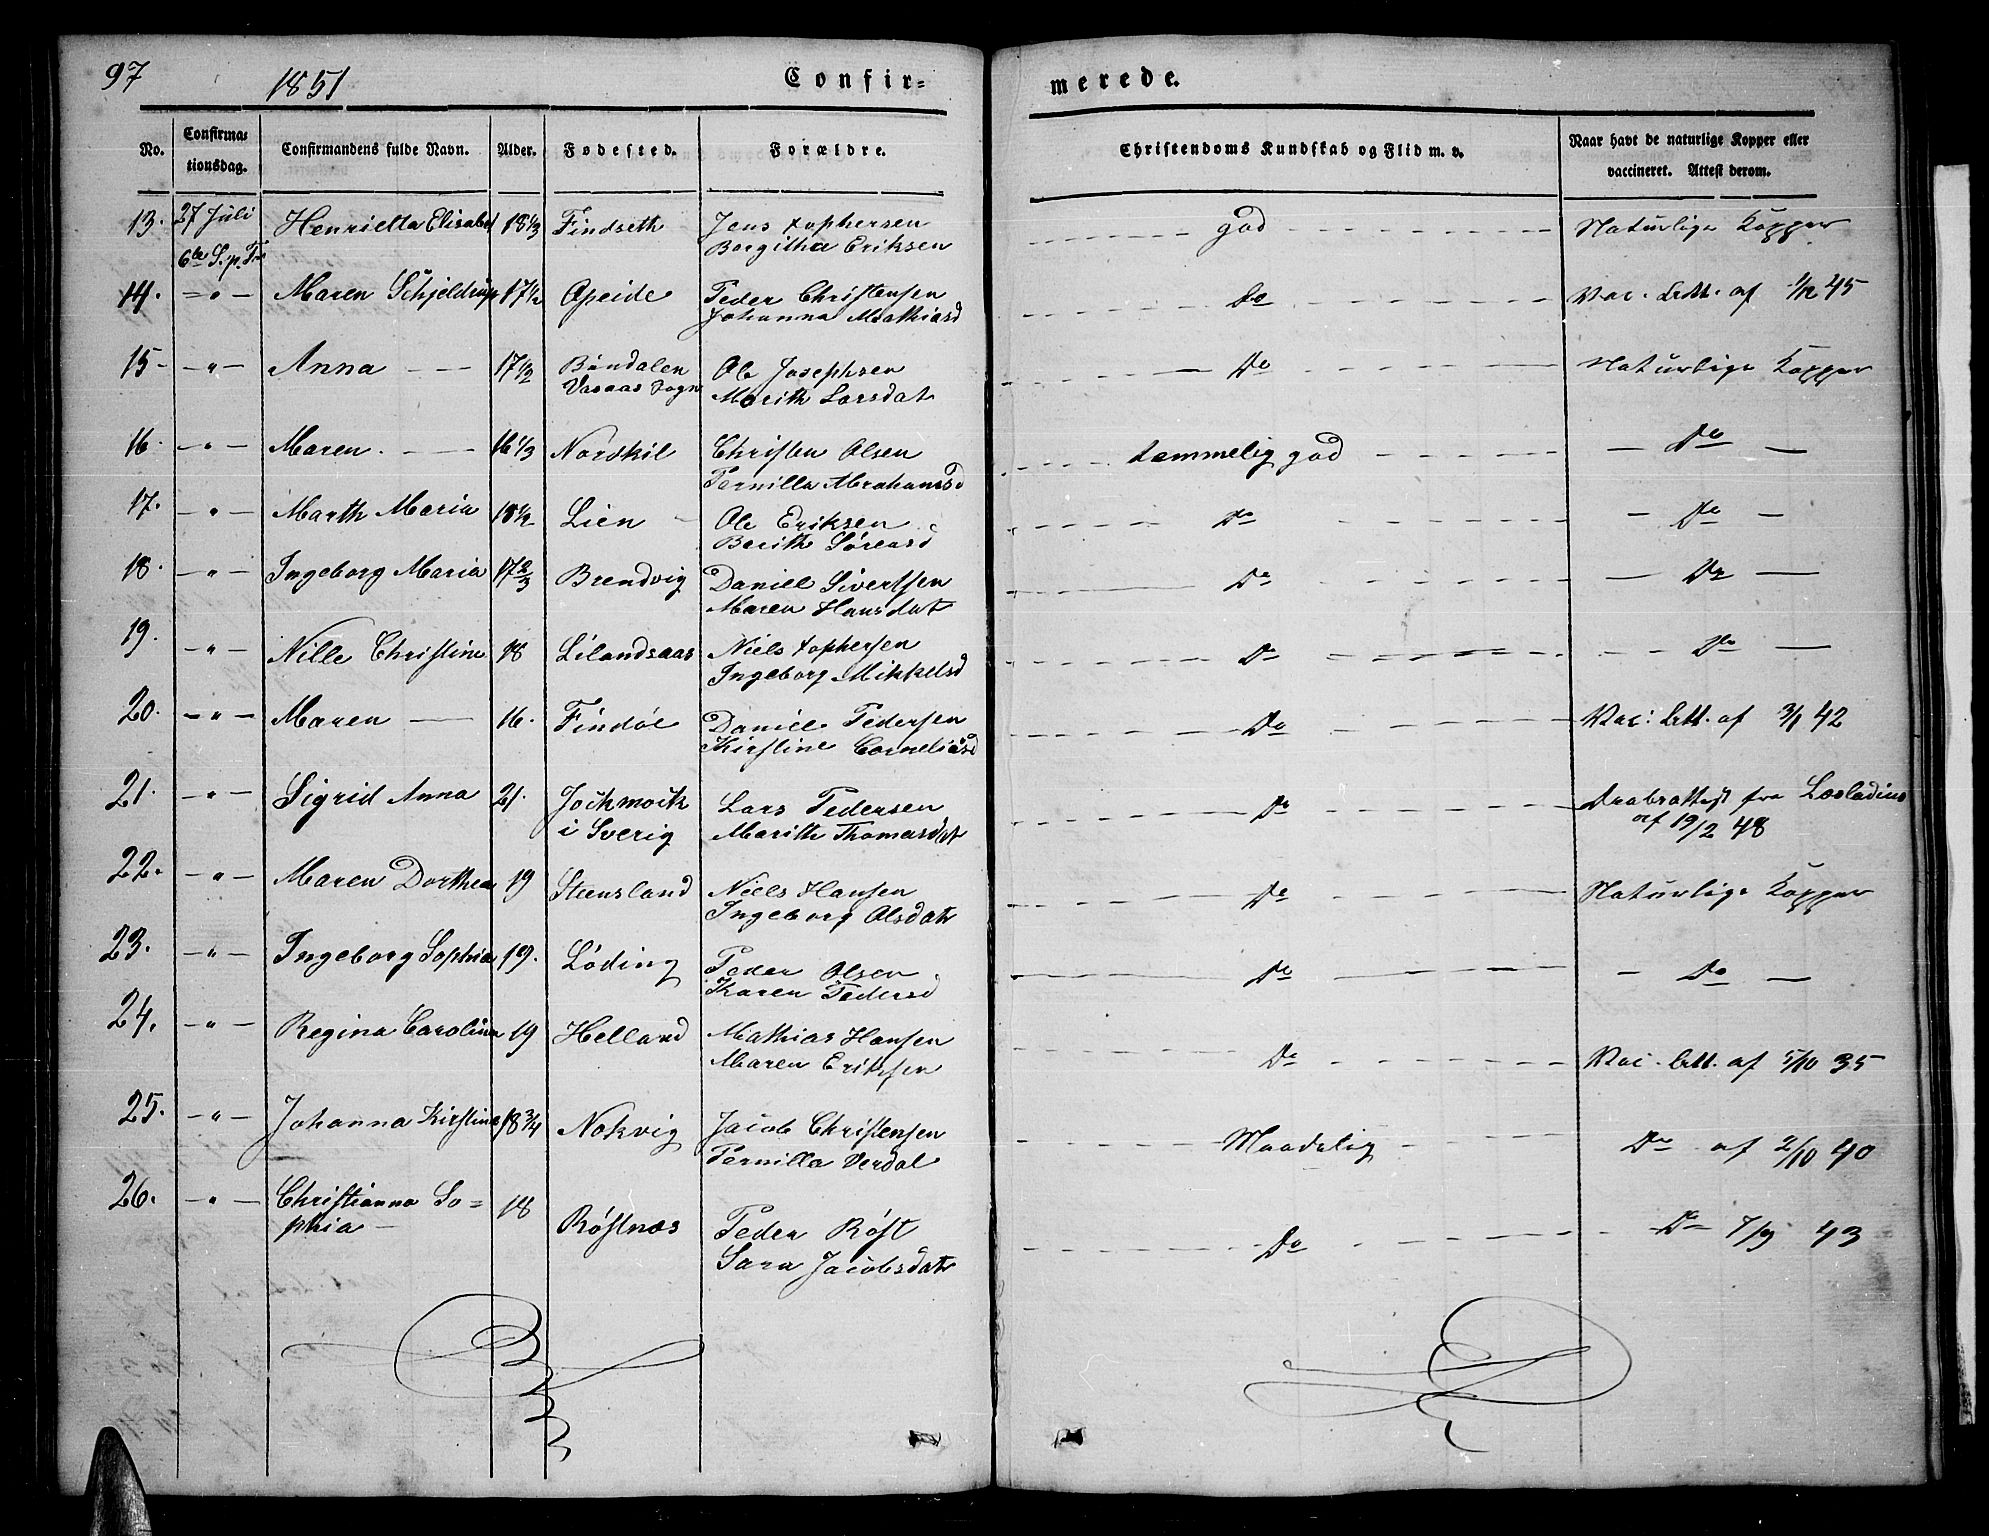 97 1851 Confir= merede.
No. Confirma= tionsdag. Confirmandens fulde Navn. Alder. Fødested. Forældre. Christendoms Kundskab og Flid m. v. Naar havt de naturlige Kopper eller vaccineret. Attest derom.
13. 27 Juli Henrietta Elisabet 18 1/3 Findseth Jens xophersen god Naturlige Kopper
6te S. p. Tr Borgitha Eriksen
14. — " — Maren Schjeldrup 17 1/2 Opeide Peder Christensen Do Vac. Att. af 1/12 45
Johanna Mathiasd
15 — " — Anna 17 1/2 Bøndalen Ole Josephsen Do Naturlige Kopper
Vasaas Sogn Marith Larsdat
16 — " — Maren 16 1/3 Norskil Christen Olsen temmelig god — Do —
Pernilla Abrahamsd
17. — " — Marth Maria 18 1/2 Lien Ole Eriksen Do — Do —
Berith Sørensd
18. — " — Ingeborg Maria 17 2/3 Brendvig Daniel Sivertsen Do — Do —
Maren Hansdat
19. — " — Nille Christine 18 Lilandsaas Niels xophersen Do — Do —
Ingeborg Mikkelsd
20. — " — Maren 16. Findøe Daniel Pedersen Do Vac: Att. af 3/1 42
Kirstine Corneliusd
21. — " — Sigrid Anna 21. Jockmock Lars Pedersen Do fra Læstadius
i Sverig Marith Thomasdat af 19/2 48
22. — " — Maren Dorthea 19 Steensland Niels Hansen Do Naturlige Kopper
Ingeborg Olsdatr
23. — " — Ingeborg Sophia 19. Løding Peder Olsen Do — Do —
Karen Pedersd
24. — " — Regina Carolina 19 Helland Mathias Hansen Do Vac. Att. af 5/10 35
Maren Eriksen
25. — " — Johanna Kirstine 18 3/4 Nokvig Jacob Christensen Maadelig Do af 2/10 40
Pernilla Verdal
26. — " — Christianna So= 18 Røstnæs Peder Røst Do Do 7/9 43
phia — Sara Jacobsdatr